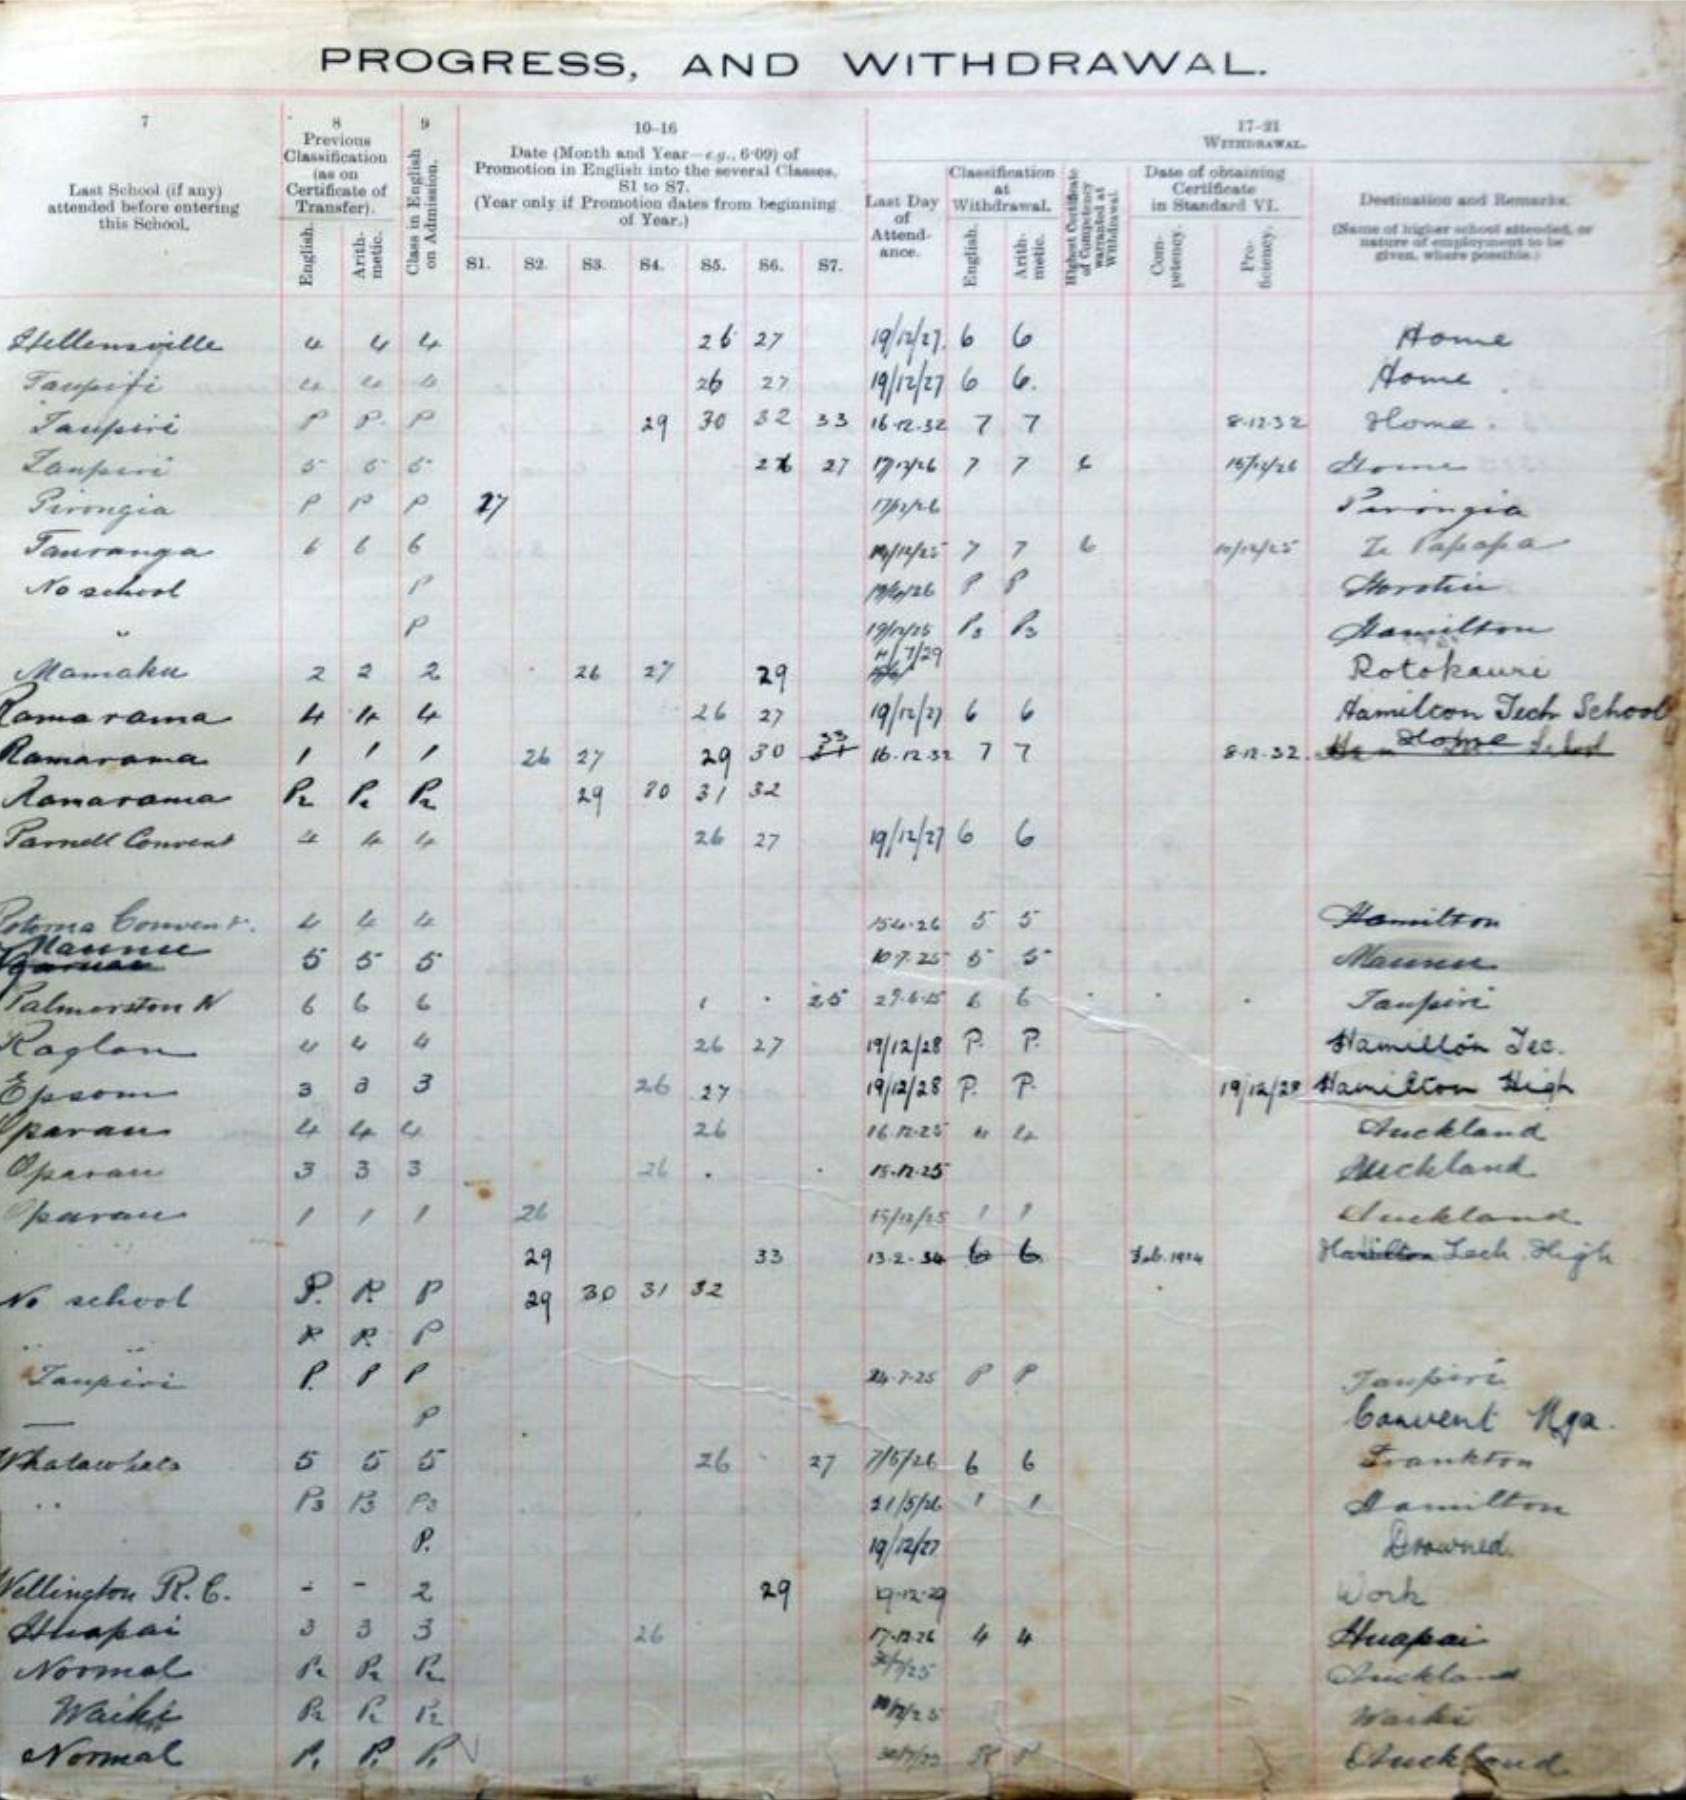 PROGRESS, AND WITHDRAWAL.
7 8 9 10–16 17–21
Last School (if any) attended before entering this School.
Previous Classification (as on Certificate of Transfer).
English. Arithmetic.
Class in English on Admission.
Date (Month and Year—e.g., 6·09) of Promotion in English into the several Classes, S1 to S7.
(Year only if Promotion dates from beginning of Year.)
S1. S2. S3. S4. S5. S6. S7.
WITHDRAWAL.
Last Day of Attendance.
Classification at Withdrawal.
English. Arithmetic.
Highest Certificate of Competency warranted at Withdrawal.
Date of obtaining Certificate in Standard VI.
Competency. Proficiency.
Destination and Remarks.
(Name of higher school attended, or nature of employment to be given, where possible.)
Hellensville 4 4 4 26 27 19/12/27 6 6 Home
Taupiri 4 4 4 26 27 19/12/27 6 6. Home
Taupiri P P. P 29 30 32 33 16.12.32 7 7 8.12.32 Home.
Taupiri 5 5 5 27 17/12/26 7 7 6 Home
Pirongia P P P 27 17/12/26 Pirongia
Tauranga 6 6 6 7 7 6 Te Papapa
No school P P P Horotiu
" P 19/12/25 P3 P3 Hamilton
Mamaku 2 2 2 26 27 29 7/29 Rotokauri
Ramarama 4 4 4 26 27 19/12/27 6 6 Hamilton Tech School
Ramarama 1 1 1 26 27 29 30 33 16.12.32 7 7 8.12.32. Home
Ramarama P2 P2 P2 29 30 31 32
Parnell Convent 4 4 4 26 27 19/12/27 6 6
Convent. 4 4 4 15.4.26 5 5 Hamilton
Maunu 5 5 5 10.7.25 5 5 Maunu
Palmerston N 6 6 6 25 6 6 Taupiri
Raglan 4 4 4 26 27 19/12/28 P. P. Hamilton Tec.
Epsom 3 3 3 26 27 19/12/28 P. P. 19/12/28 Hamilton High
Oparau 4 4 4 26 16.12.25 4 4 Auckland
Oparau 3 3 3 26 15.12.25 Auckland
Oparau 1 1 1 26 15/12/25 1 1 Auckland
29 33 13.2.34 6 6 Feb. 1934 Hamilton Tech. High
No school P. P. P 29 30 31 32
" " P. P. P
Taupiri P. P P 24.7.25 P P Taupiri
— P Convent Nga.
Whatawhata 5 5 5 26 27 7/5/26 6 6 Frankton
" P3 P3 P3 21/5/26 1 1 Hamilton
P. 19/12/27 Drowned.
Wellington R.C. - - 2 29 19-12-29 Work
Huapai 3 3 3 26 17.12.26 4 4 Huapai
Normal P2 P2 P2 Auckland
Waihi P2 P2 P2 Waihi
Normal P1 P1 P1 P Auckland